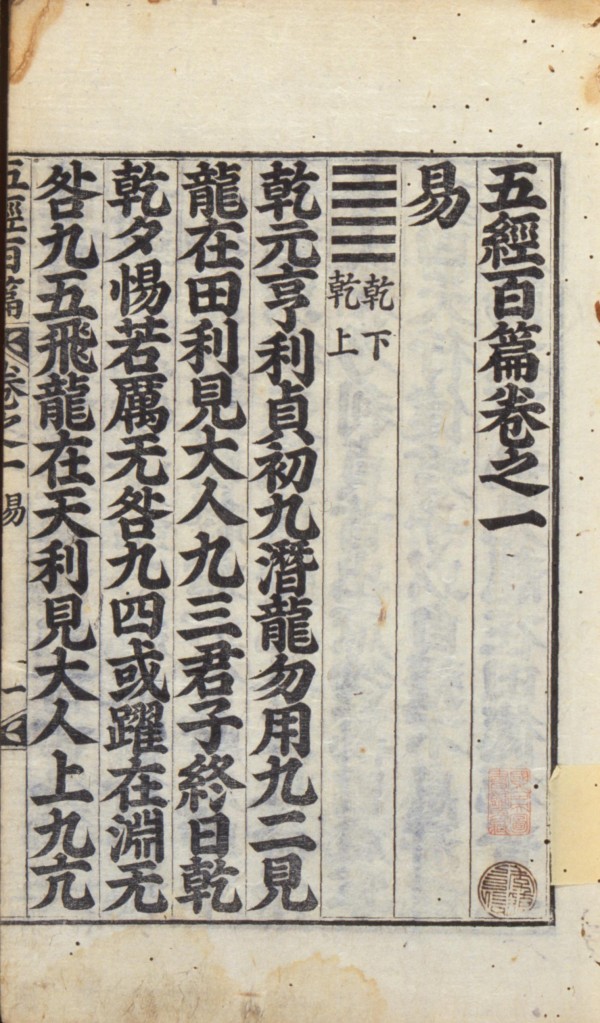 五經百篇卷之一
易
乾下
乾上
乾元亨利貞初九潛龍勿用九二見
龍在田利見大人九三君子終日乾
乾夕惕若厲无咎九四或躍在淵无
咎九五飛龍在天利見大人上九亢
五經百篇 卷之一 易 一